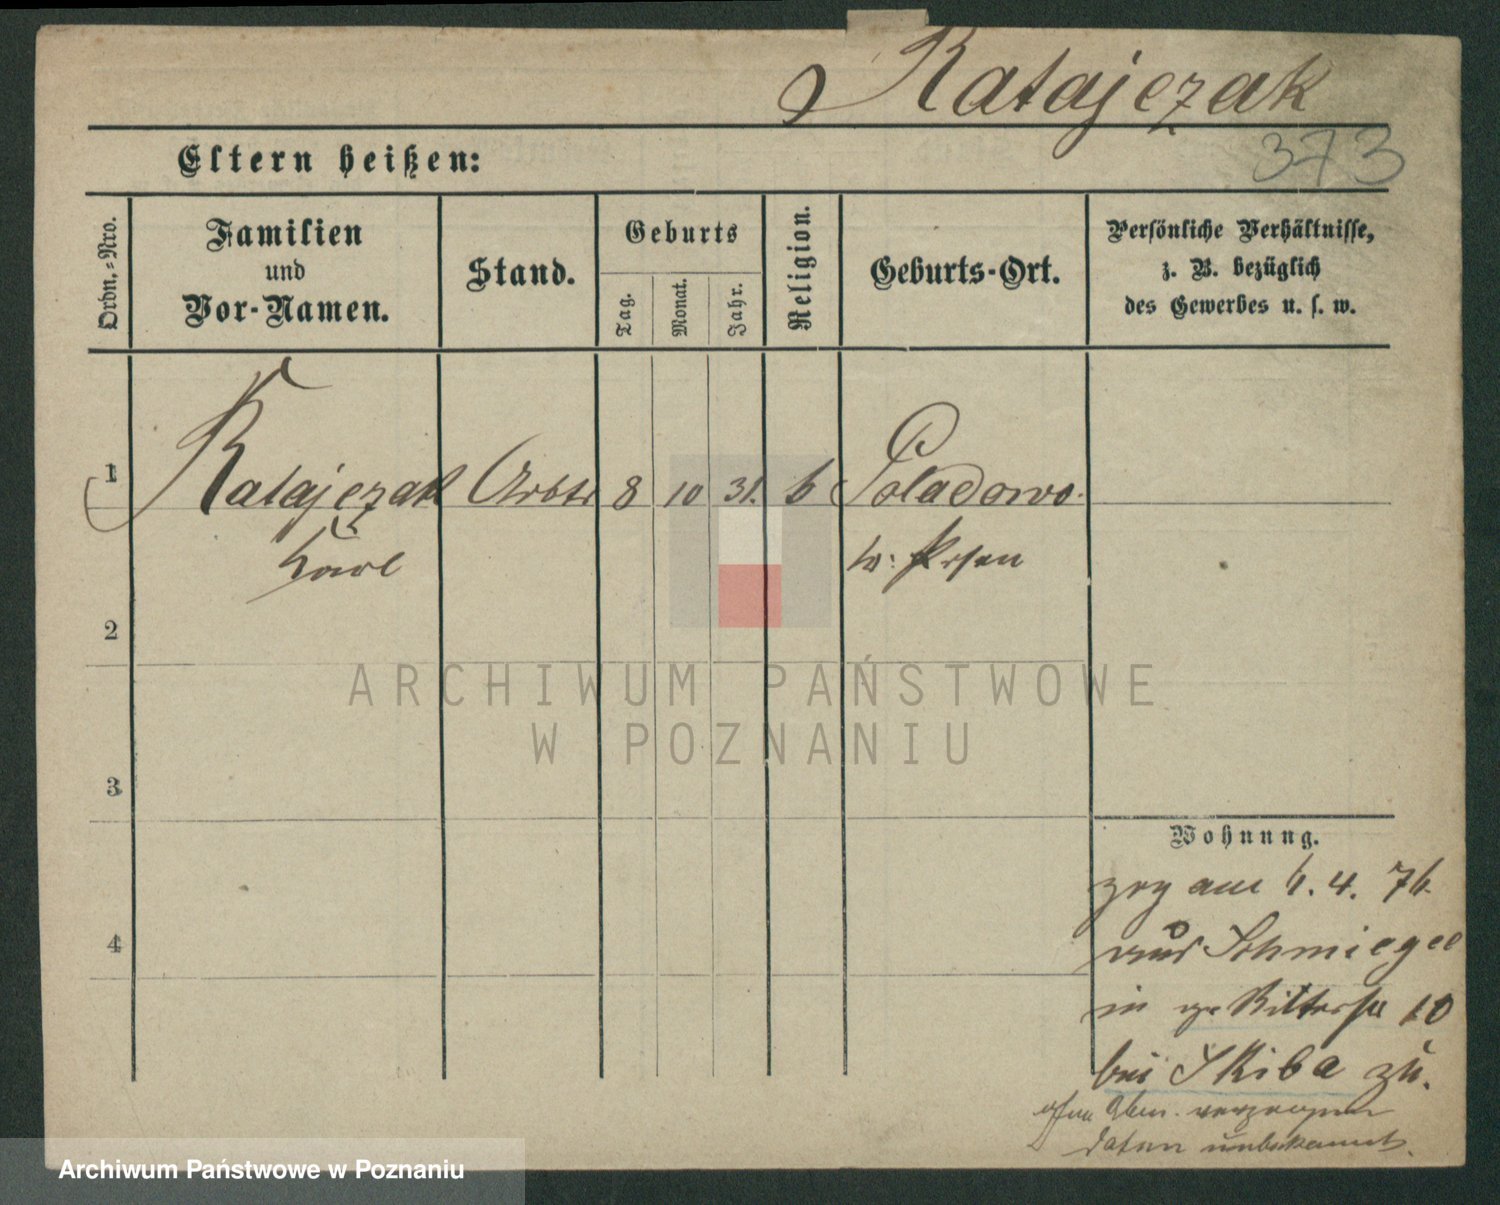 Ratajczak
373
Eltern heißen:
Ordn.-Nro.
Familien
und
Vor-Namen.
Stand.
Geburts
Tag.
Monat.
Jahr.
Religion.
Geburts-Ort.
Persönliche Verhältnisse,
z. B. bezüglich
des Gewerbes u. s. w.
1
Ratajczak Arbtr 8 10 31. k Poladowo.
Karl
Kr: Posen
2
ARCHIWUM PAŃSTWOWE
W POZNANIU
3
Wohnung.
zog am 4. 76
4
aus Schmiegel
in gr Ritterstr 10
bei Skiba zu.
ohne Abm. verzogen
Datum unbekannt.
Archiwum Państwowe w Poznaniu